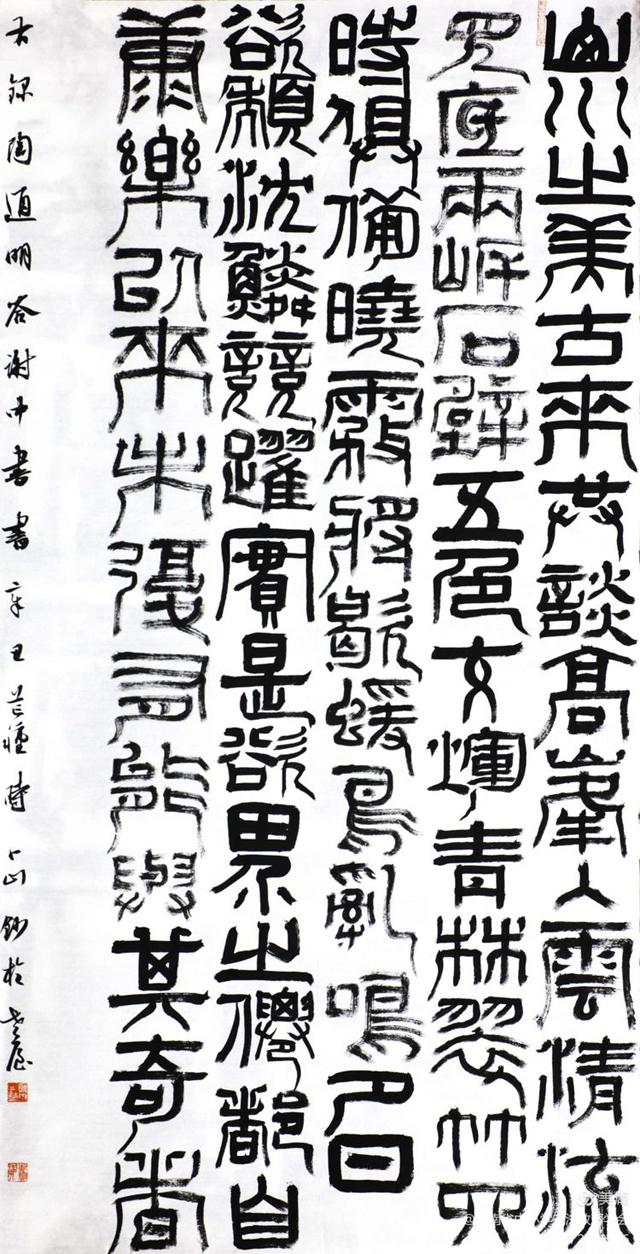 山川之美古來共談高峯入雲清流
見底兩岸石壁五色交輝青林翠竹四
時俱備曉霧將歇蝯鳥亂鳴夕日
欲頹沈鱗競躍實是欲界之僊都自
康樂以來未復有能與其奇者
右録陶通明答謝中書書辛丑芒種山於